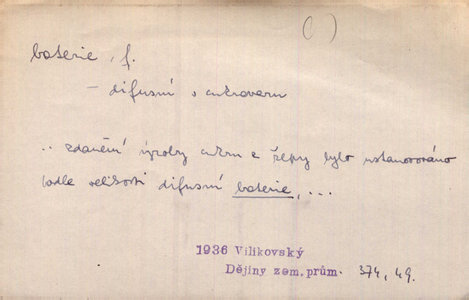 ( )
baterie, f.
– difusní v cukrovaru
.. zdanění výroby cukru z řepy bylo ustanovováno
podle velikosti difusní baterie, ...
1936 Vilikovský
Dějiny zem. prům. 374, 49.